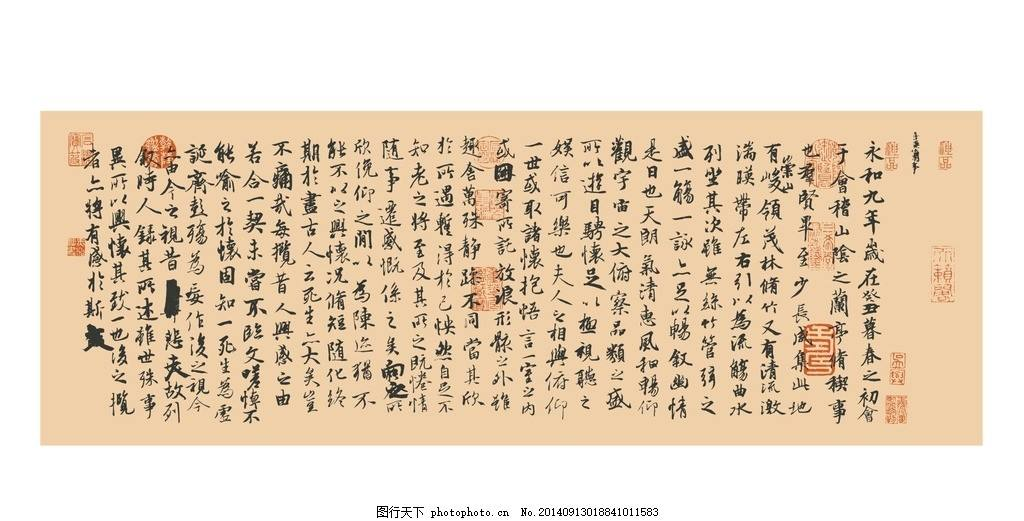 永和九年歲在癸丑暮春之初會
于會稽山陰之蘭亭脩稧事
也羣賢畢至少長咸集此地
有崇山峻領茂林脩竹又有清流激
湍暎帶左右引以為流觴曲水
列坐其次雖無絲竹管弦之
盛一觴一詠亦足以暢敘幽情
是日也天朗氣清惠風和暢仰
觀宇宙之大俯察品類之盛
所以遊目騁懷足以極視聽之
娛信可樂也夫人之相與俯仰
一世或取諸懷抱悟言一室之內
或因寄所託放浪形骸之外雖
趣舍萬殊靜躁不同當其欣
於所遇暫得於己怏然自足不
知老之將至及其所之既惓情
隨事遷感慨係之矣向之所
欣俛仰之閒以為陳迹猶不
能不以之興懷況脩短隨化終
期於盡古人云死生亦大矣豈
不痛哉每攬昔人興感之由
若合一契未嘗不臨文嗟悼不
能喻之於懷固知一死生為虛
誕齊彭殤為妄作後之視今
亦由今之視昔悲夫故列
敘時人錄其所述雖世殊事
異所以興懷其致一也後之攬
者亦將有感於斯文
图行天下 photophoto.cn No.20140913018841011583